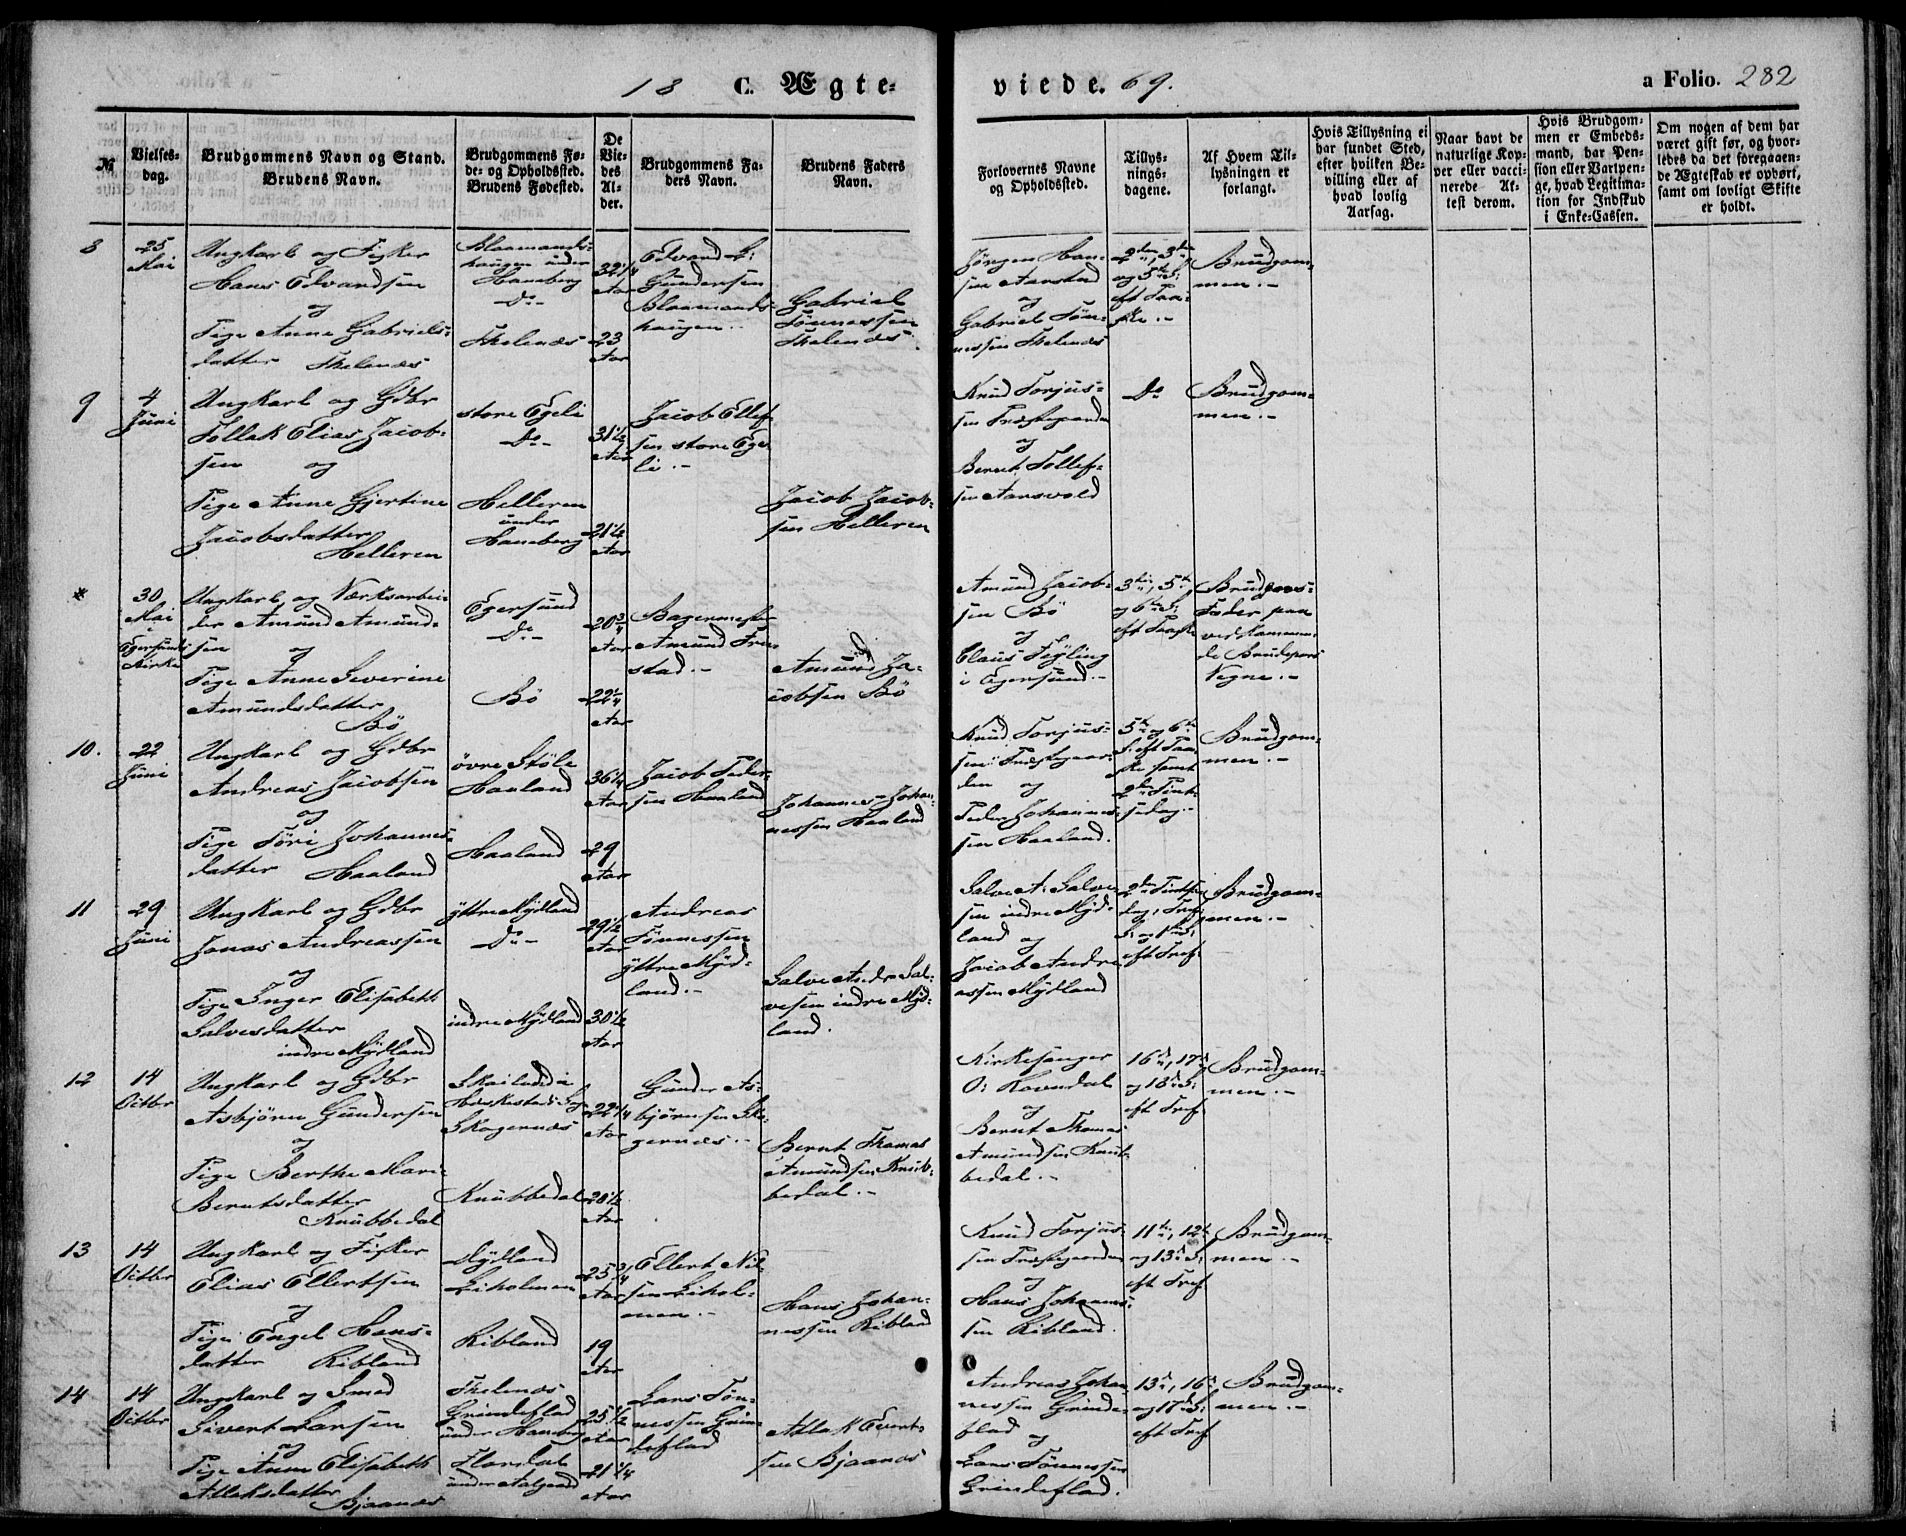 18 C. Ægte-
viede. 69.
a Folio. 282
№
Vielses-
dag.
Brudgommens Navn og Stand.
Brudens Navn.
Brudgommens Fø-
de- og Opholdssted.
Brudens Fødested.
De
Vie-
des
Al-
der.
Brudgommens Fa-
ders Navn.
Brudens Faders
Navn.
Forlovernes Navne
og Opholdssted.
Tillys-
nings-
dagene.
Af Hvem Til-
lysningen er
forlangt.
Hvis Tillysning ei
har fundet Sted,
efter hvilken Be-
villing eller af
hvad lovlig
Aarsag.
Naar havt de
naturlige Kop-
per eller vacci-
nerede At-
test derom.
Hvis Brudgom-
men er Embeds-
mand, har Pen-
sion eller Vartpen-
ge, hvad Legitima-
tion for Indskud
i Enke-Cassen.
Om nogen af dem har
været gift før, og hvor-
ledes da det foregaaen-
de Ægteskab er ophørt,
samt om lovligt Skifte
er holdt.
8
25
Mai
Ungkarl og Fisker
Hans Edvardsen
og
Pige Anne Gabriels-
datter Thelenæs
Blaamands-
haugen under
Haneberg
Do -
Thelenæs
32 1/4
Aar
23
Aar
Edvard G:
Gundersen
Blaamands-
haugen.
Gabriel
Tønnessen
Thelenæs.
Jørgen Han-
sen Aarstad
og
Gabriel Tøn-
nessen Thelenæs
2den, 3die
og 5te S:
eft Paa-
ske. -
Brudgom-
men. -
9
4
Juni
Ungkarl og Gdbr
Tollak Elias Jacob-
sen og
Pige Anne Gjertine
Jacobsdatter
Helleren
store Egeli
Do -
Helleren
under
Haneberg
31 1/2
Aar
21 1/2
Aar
Jacob Ellef-
sen store Ege-
li. -
Jacob Jacob-
sen Helleren
Knud Torjus-
sen Præstegaarden
og
Bernt Tollef-
sen Aarsvold
Do
Brudgom-
men. -
*
30
Mai
Egersunds
Kirke
Ungkarl og Værksarbei-
der Amund Amund-
sen og
Pige Anne Severine
Amundsdatter
Bø
Egersund
Do -
Bø
20 3/4
Aar
22 1/4
Aar
Bagermester
Amund
stad. -
Amund Ja-
cobsen Bø
Amund Jacob-
sen Bø
og
Claus Feyling
i Egersund. -
3die, 5te
og 6te S:
eft Paaske
Brudens
Fader paa
vedkommen-
de Brudepars
Vegne. -
10.
22
Juni
Ungkarl og Gdbr
Andreas Jacobsen
og
Pige Tøri Johannes-
datter Haaland
øvre Støle
Haaland
Haaland
36 1/4
Aar
29
Aar
Jacob Peder-
sen Haaland
Johannes Johan-
nessen Haaland
Knud Torjus-
sen Præstegaar-
den og
Peder Johannes-
sen Haaland.
5te og 6te
S: eft Paa-
ske samt
2den Pint-
sedag. -
Brudgom-
men. -
11
29
Juni
Ungkarl og Gdbr
Jonas Andreassen
og
Pige Inger Elisabeth
Salvesdatter
indre Mydland
yttre Mydland
Do -
indre Mydland
29 1/2
Aar
30 1/2
Aar
Andreas
Tønnessen
yttre Myd-
land. -
Salve Andr. Sal-
vesen indre Myd-
land.
Salve A: Salve-
sen indre Myd-
land og
Jacob Andre-
assen Mydland
2den Pintse-
dag, Tref.
S: og 1ste S:
eft Tref.
Brudgom-
men. -
12
14
Octbr
Ungkarl og Gdbr
Asbjørn Gundersen
og
Pige Berthe Marie
Berntsdatter
Knubbedal
Hæskestad Sogn
Skogernæs
Knubbedal
22 1/4
Aar
20 1/2
Aar
Gunder As-
bjørnsen Sko-
gernæs. -
Bernt Thomas
Amundsen Knub-
bedal. -
Kirkesanger
O: Ravndal
og
Bernt Thomas
Amundsen Knub-
bedal. -
16de, 17de
og 18de S:
eft Tref.
Brudgom-
men. -
13
14
Octbr
Ungkarl og Fisker
Elias Ellertsen
og
Pige Engel Hans-
datter Ribland
Mydland
Liholmen
Ribland
25 3/4
Aar
19
Aar
Ellert Niel-
sen Lihol-
men. -
Hans Johan-
nessen Ribland
Knud Torjus-
sen Præstegaarden
og
Hans Johannes-
sen Ribland.
11te, 12te
og 13de S:
eft Tref.
Brudgom-
men. -
14
14
Octbr
Ungkarl og Smed
Sivert Larsen
og
Pige Anne Elisabeth
Atlaksdatter
Bjaanæs
Thelenæs
Grindeflad
under Haneberg
Flordal
under Aalgaard
25 1/2
Aar
21 1/4
Aar
Lars Tøn-
nessen Grin-
deflad
Atlak Evert-
sen Bjaanæs
Andreas Johan-
nessen Grinde-
flad og
Lars Tønnessen
Grindeflad.
13de, 16de
og 17de S:
eft Tref
Brudgom-
men. -